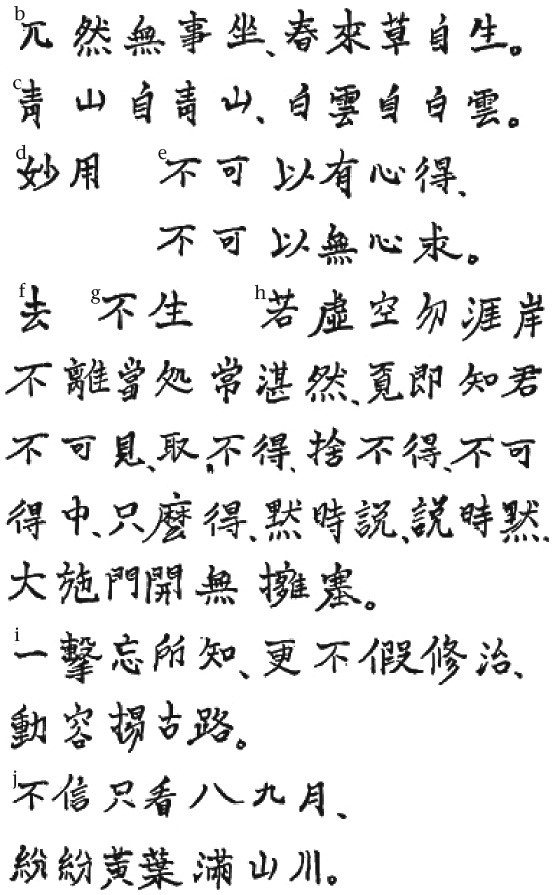 b 兀然無事坐、春來草自生。
c 青山自青山、白雲自白雲。
d 妙用 e 不可以有心得、
不可以無心求。
f 去 g 不生 h 若虛空勿涯岸
不離當処常湛然、覓即知君
不可見、取不得、捨不得、不可
得中、只麼得、黙時説、説時黙、
大施門開無擁塞。
i 一擊忘所知、更不假修治、
動容揚古路。
j 不信只看八九月、
紛紛黃葉滿山川。